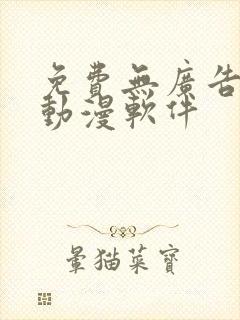 免費無廣告
動漫軟件
暈猫菜寶